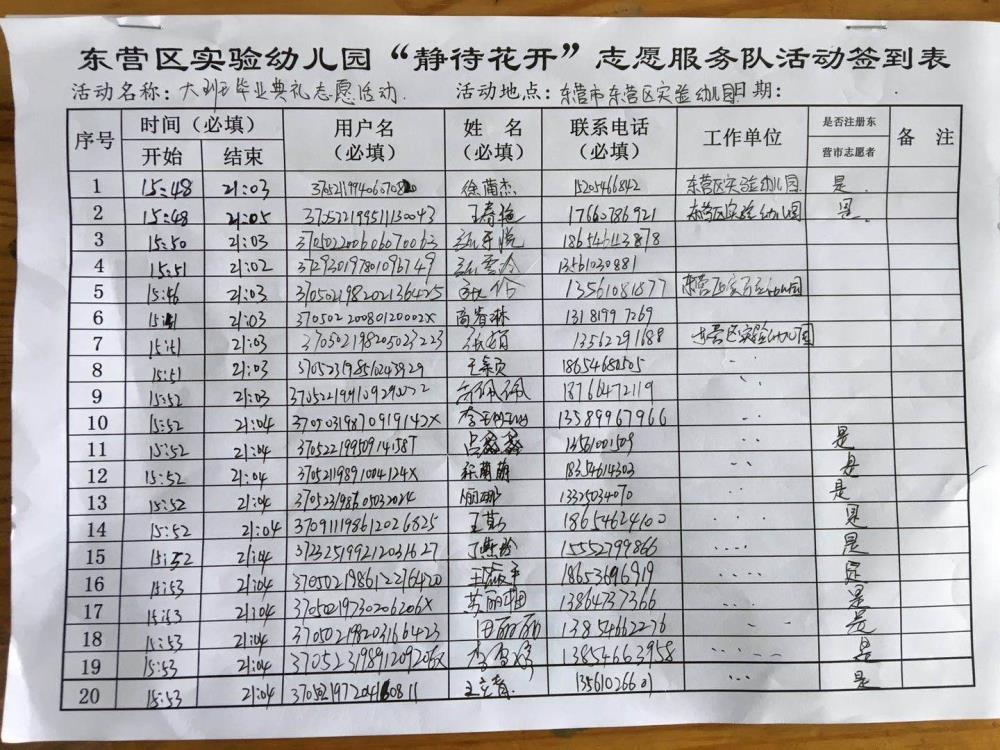 东营区实验幼儿园“静待花开”志愿服务队活动签到表
活动名称：大班毕业典礼志愿活动 活动地点：东营市东营区实验幼儿园 日期：
序号 时间（必填） 用户名（必填） 姓 名（必填） 联系电话（必填） 工作单位 是否注册东营市志愿者 备 注
开始 结束
1 15:48 21:03 东营区实验幼儿园 是
2 15:48 21:05 370522199511130043 王春艳 17660786921 东营区实验幼儿园 是
3 15:50 21:03 370502200606070063 18654643878
4 15:51 21:02 372930197801096749 13561030881
5 15:46 21:03 370502198202136425 13561081877 东营区实验幼儿园
6 21:03 37050220080120002X 商睿琳 13181997269
7 15:51 21:03 370502198205023223 张颖 13562291688 东营区实验幼儿园
8 15:51 21:03 18654680505
9 15:52 21:03 18766472119
10 15:52 21:04 37050319870919142X 13589967966
11 15:52 21:04 370522199509141587 吕鑫鑫 13561001509 是
12 15:52 21:04 37052119891004124X 18354614303 是
13 15:52 21:04 13325034070 是
14 15:52 21:04 370911198612026825 18654624100 是
15 15:52 21:04 372325199212031627 15552799866 是
16 15:53 21:04 370502198612216420 18653696919 是
17 15:53 21:04 37050219730206206X 13864737366 是
18 15:53 21:04 370502198203166423 田丽丽 13854662276 是
19 15:53 21:04 37052319891209206X 李雪婷 13854663958 是
20 15:53 21:04 是